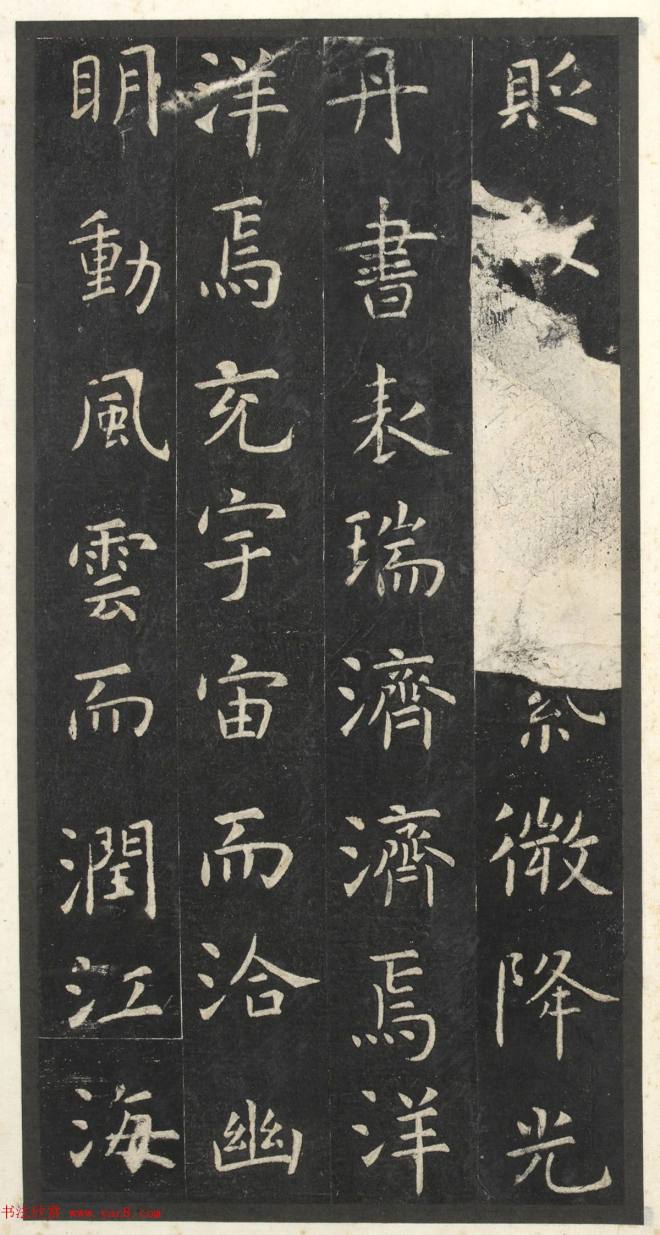 貶微降光
丹書表瑞濟濟焉洋
洋焉充宇宙而洽幽
明動風雲而潤江海
书法欣赏 www.yac8.com